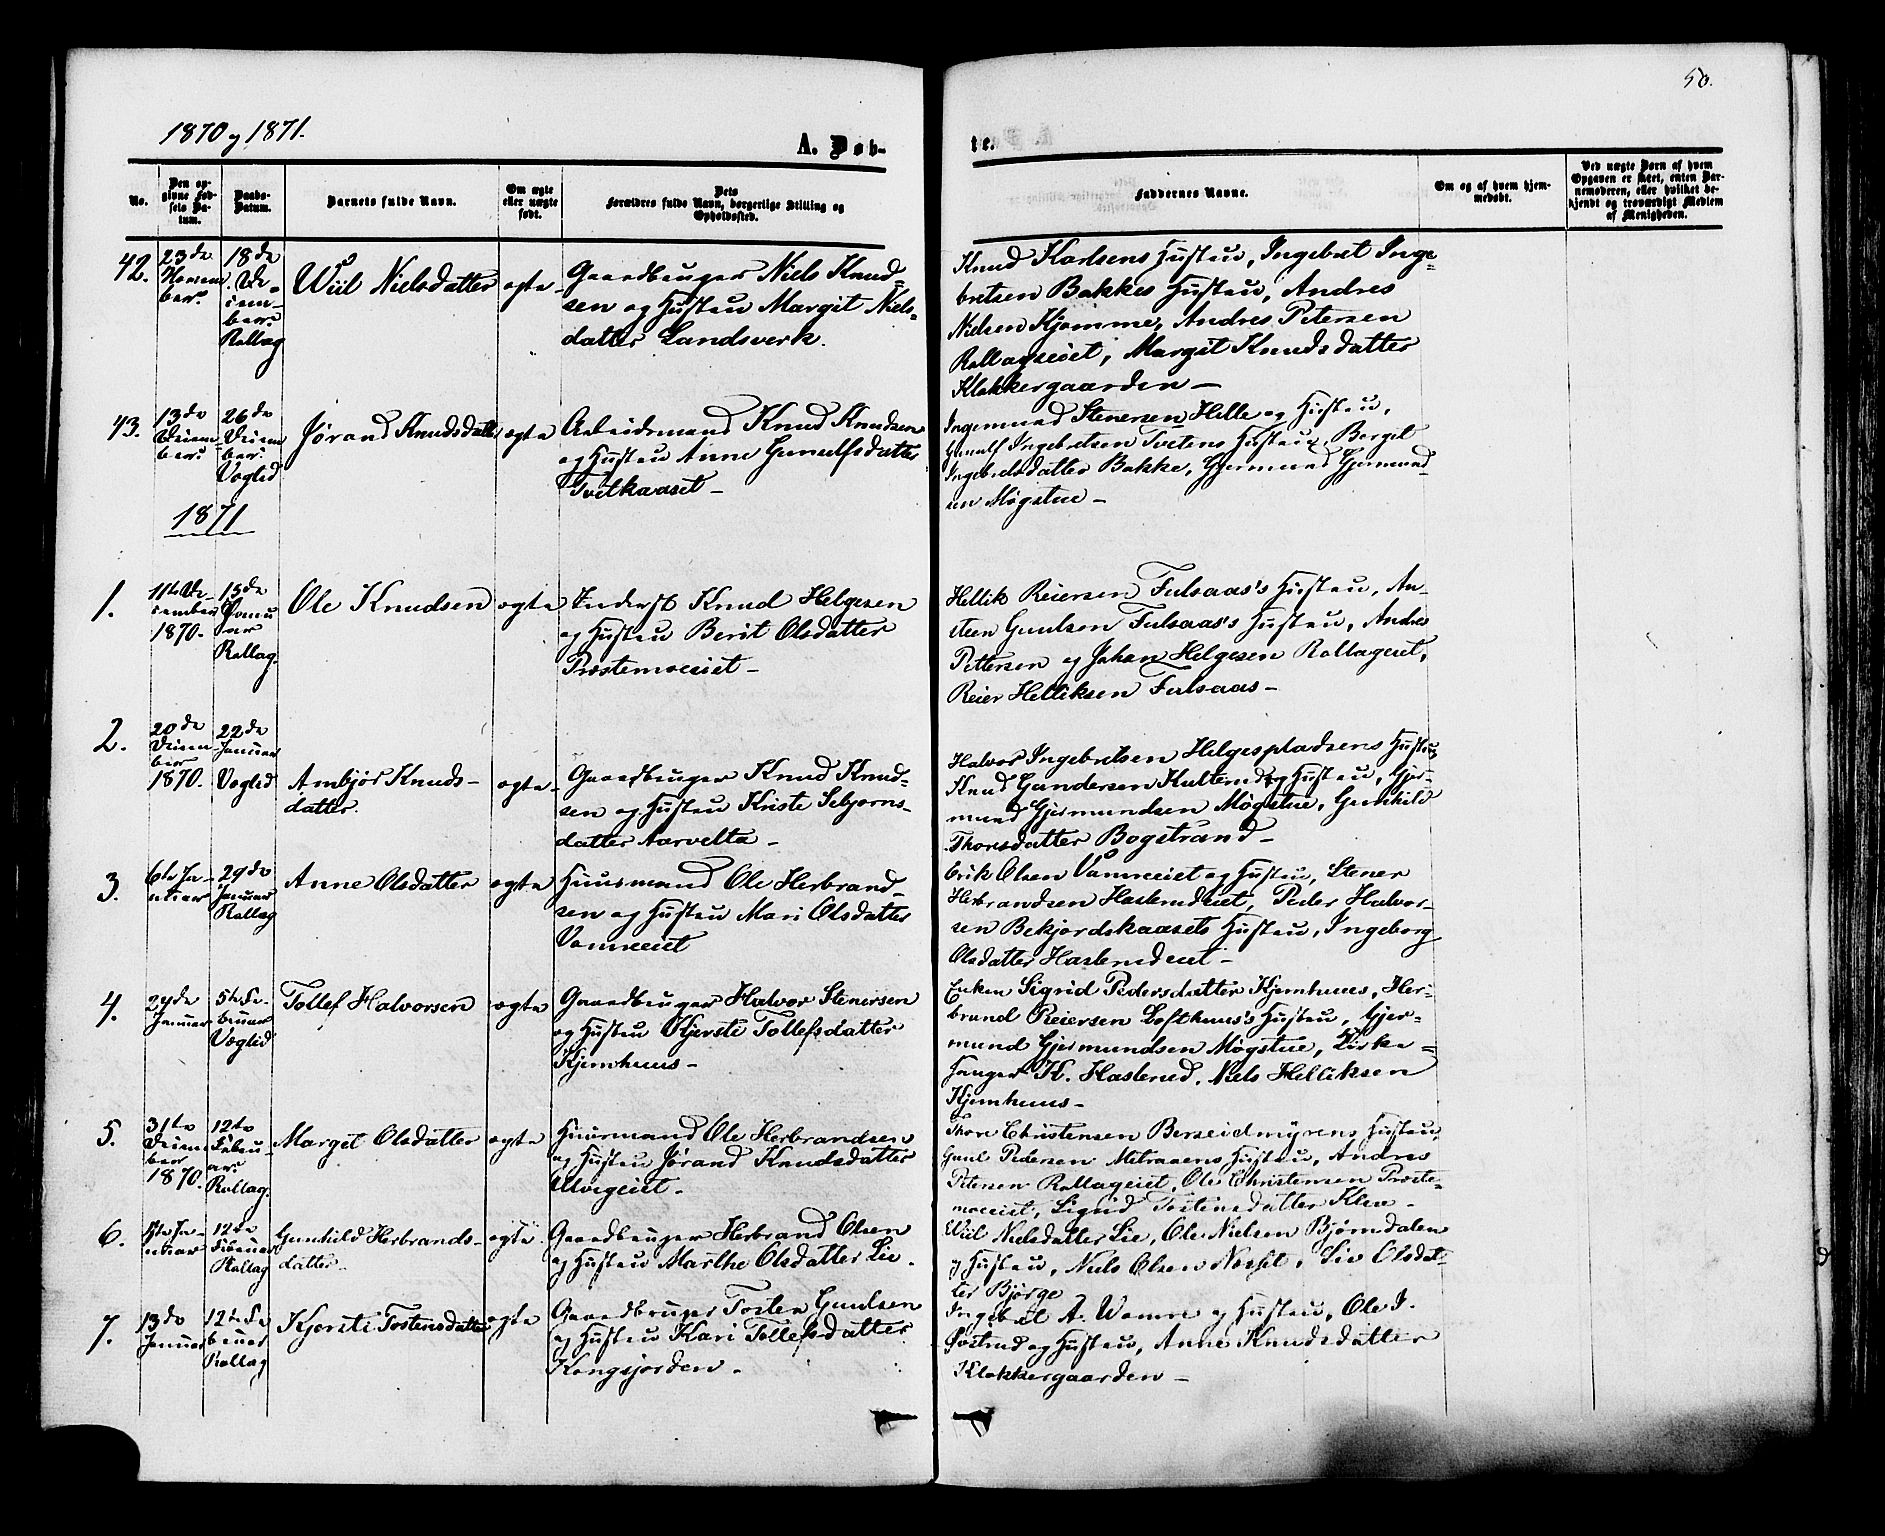 50.
1870 og 1871.
A. Døb-
te.
No.
Den op-
givne Fød-
sels Da-
tum.
Daabs-
Datum.
Barnets fulde Navn.
Om ægte
eller uægte
født.
Dets
Forældres fulde Navn, borgerlige Stilling og
Opholdssted.
Faddernes Navne.
Om og af hvem hjem-
medøbt.
Ved uægte Børn af hvem
Opgaven er skeet, enten Bar-
nemoderen, eller hvilket be-
kjendt og troværdigt Medlem
af Menigheden.
42.
23de
Novem
ber.
18de
De-
cem-
ber.
Rollag
Wiil Nielsdatter
ægte
Gaardbruger Niels Knud-
sen og Hustru Margit Niels-
datter Landsverk.
Knud Karlsens Hustru, Ingebret Inge-
bretsen Bakkes Hustru, Andres
Nielsen Kjomme, Andres Petersen
Rollageiet, Margit Knudsdatter
Klokkergaarden —
43.
13de
Decem
ber.
26de
Decem
ber.
Veglid
Jørand Knudsdatter
ægte
Arbeidsmand Knud Knudsen
og Hustru Anne Gunulfsdatter
Tveitkaaset —
Ingemund Stenersen Helle og Hustru,
Gunulf Ingebretsen Tvetens Hustru, Berget
Ingebretsdatter Bakke, Gjermund Gjermund-
sen Møgstue —
1871
1.
11te De-
cember
1870.
15de
Janu
ar
Rollag.
Ole Knudsen
ægte
Inderst Knud Helgesen
og Hustru Berit Olsdatter
Præstemoeiet —
Hellik Reiersen Fulsaas's Hustru, An-
steen Gunlsen Fulsaas's Hustru, Andres
Pettersen og Johan Helgesen Rollageiet,
Reier Helliksen Fulsaas —
2.
20de
Decem
ber
1870.
22de
Januar
Veglid
Ambjør Knuds-
datter.
ægte
Gaardbruger Knud Knud-
sen og Hustru Kriste Sebjorns-
datter Aarvelta —
Halvor Ingebretsen Helgespladsens Hustru
Knud Gundersen Kulterud og Hustru, Gjer-
mund Gjermundsen Møgstue, Gunhild
Thorsdatter Bogstrand —
3.
6te Ja-
nuar
29de
Januar
Rollag
Anne Olsdatter
ægte
Huusmand Ole Herbrand-
sen og Hustru Mari Olsdatter
Vameeiet
Erik Olsen Vaameeiet og Hustru, Stener
Herbrandsen Haslerudeiet, Peder Halvor-
sen Bekjordskaasets Hustru, Ingeborg
Olsdatter Haslerudeiet —
4.
24de
Januar
5te Fe-
bruar
Veglid
Tollef Halvorsen
ægte
Gaardbruger Halvor Stenersen
og Hustru Kjersti Tollefsdatter
Kjemhuus —
Enken Sigrid Pedersdatter Kjemhuus, Her-
brand Reiersen Lofthuus's Hustru, Gjer-
mund Gjermundsen Møgstue, Kirke-
sanger K. Haslerud, Niels Helliksen
Kjemhuus —
5.
31te
Decem
ber
1870.
12te
Febru-
ar
Rollag.
Margit Olsdatter
ægte
Huusmand Ole Herbrandsen
og Hustru Jørand Knudsdatter
Ulvigeiet.
Thore Christensen Berseidmyrens Hustru,
Gunl Pedersen Metraaens Hustru, Andres
Petersen Rollageiet, Ole Christensen Præste-
moeeiet, Sigrid Tostensdatter Kleve —
6.
Januar
12te
Februar
Rollag
Gunhild Herbrands-
datter.
ægte
Gaardbruger Herbrand Olsen
og Hustru Marthe Olsdatter Lie.
Wiil Nielsdatter Lie, Ole Nielsen Bjørndalen
og Hustru, Niels Olsen Næsset, Liv Olsdat-
ter Bjørge
7.
13de
Januar
12te Fe
bruar
Rollag
Kjersti Tostensdatter
ægte
Gaardbruger Tosten Gunlsen
og Hustru Kari Tollefsdatter
Kongsjorden —
Ingebret A. Wamre og Hustru, Ole I.
Sostrud og Hustru, Anne Knudsdatter
Klokkergaarden —